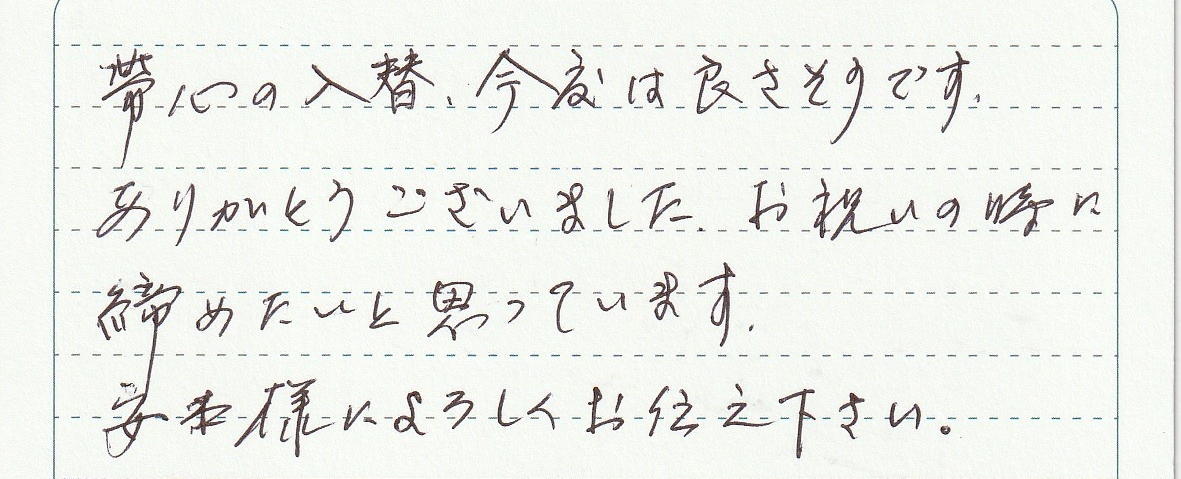 帯心の入替、今度は良さそうです。
ありがとうございました。お祝いの時に
締めたいと思っています。
様によろしくお伝え下さい。